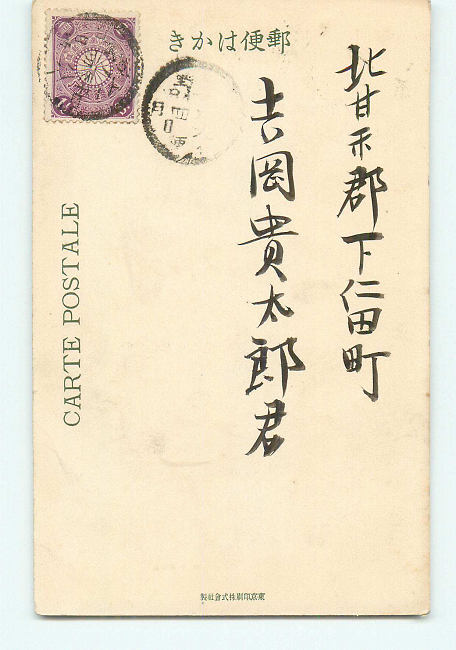 郵便はかき
北甘楽郡下仁田町
吉岡貴太郎君
CARTE POSTALE
東京印刷株式會社製